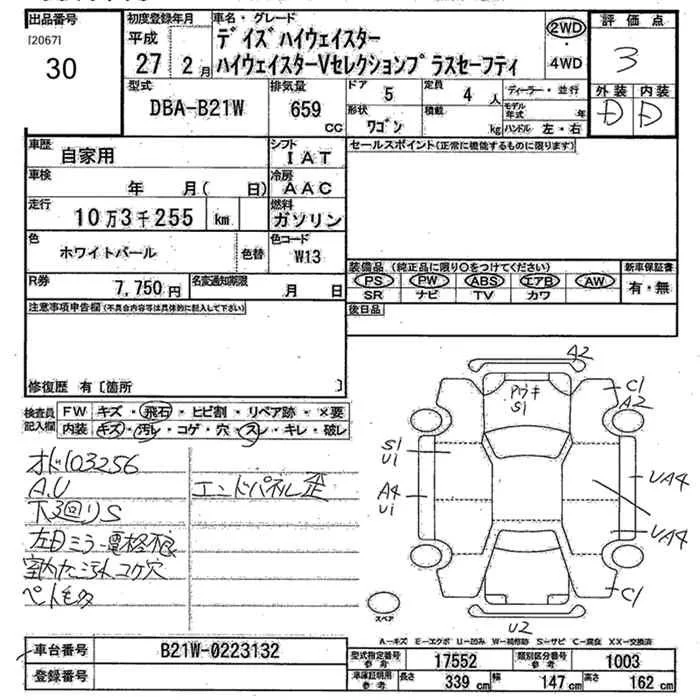 出品番号
[2067]
30
初度登録年月
平成
27 2月
車名・グレード
デイズハイウェイスター
ハイウェイスターVセレクションプラスセーフティ
2WD
・
4WD
評価点
3
外装 内装
D D
型式
DBA-B21W
排気量
659
CC
ドア
5
定員
4 人
形状
ワゴン
積載
kg
ディーラー・並行
モデル年式 年
ハンドル 左・右
車歴
自家用
シフト
IAT
車検
年 月( 日)
冷房
AAC
走行
10万3千255 km
燃料
ガソリン
色
ホワイトパール
色替
色コード
W13
R券
7,750円
名変通知期限
月 日
セールスポイント(正常に機能するものに限ります)
装備品 (純正品に限り○をつけてください)
PS PW ABS エアB AW
SR ナビ TV カワ
新車保証書
有・無
後日品
注意事項申告欄(不具合内容等は具体的に記入して下さい)
修復歴 有〔箇所 〕
検査員記入欄
FW キズ・飛石・ヒビ割・リペア跡・×要
内装 キズ・汚レ・コゲ・穴・スレ・キレ・破レ
オド103256
A.U
下回りS
左日ミラー電格不良
エンドパネル歪
A2
C1
A2
S1
S1
U1
A4
U1
UA4
UA4
C1
U2
スペア
A-キズ E-エクボ U-凹み W-補修跡 S-サビ C-腐食 XX-交換済
車台番号
B21W-0223132
登録番号
型式指定番号
参考
17552
類別区分番号
参考
1003
車庫証明用
参考
長さ 339 cm
幅 147 cm
高さ 162 cm